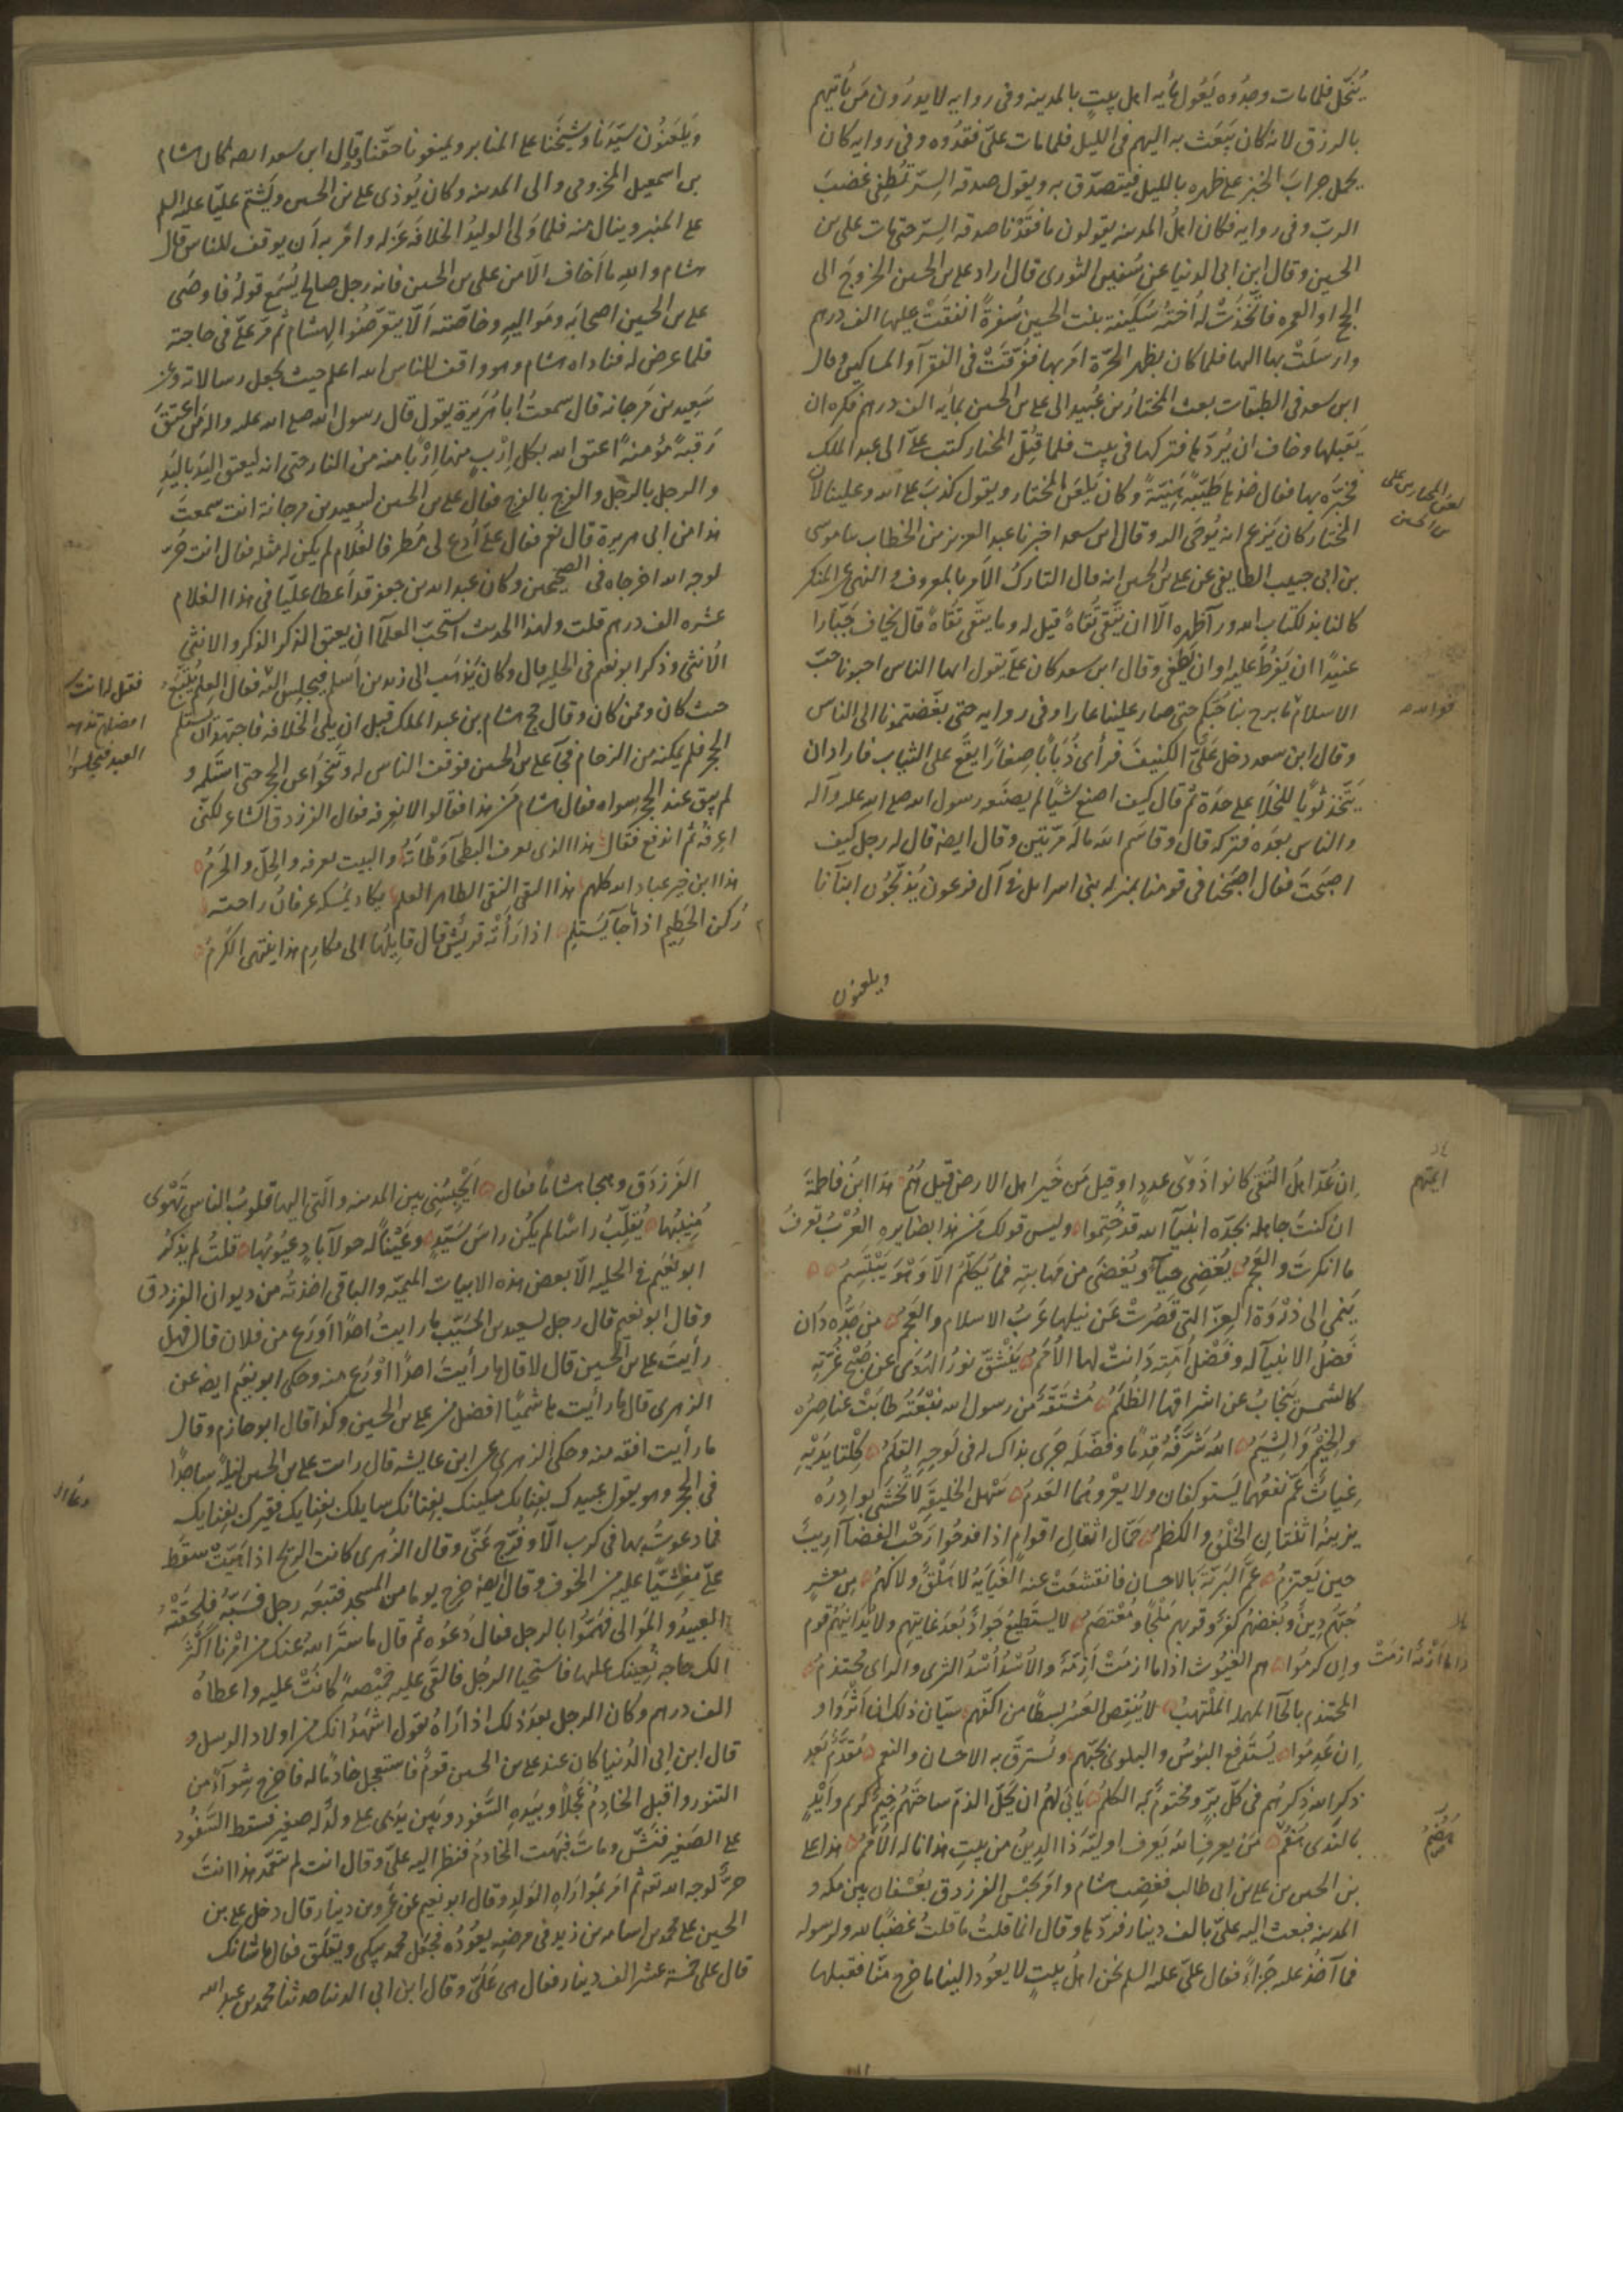 يُبَخَّل فلما مات وجدوه يَعُول مايه اهل بيت بالمدينه وفى روايه لا يدرُون مَن يأتيهم
بالرزق لانه كان يبعَث به اليهم فى الليل فلما مات علىّ فقدُوه وفى روايه كان
يحمل جرابَ الخبز على ظهره بالليل فيتصدّق به ويقول صدقه السِرّ تُطفِى غضبَ
الربّ وفى روايه فكان اهلُ المدينه يقولون ما فقَدْنا صدقه السِرّ حتى مات على بن
الحسين وقال ابن ابى الدنيا عن سُفين الثورى قال اراد على بن الحسين الخروجَ الى
الحج او العمره فاتّخذتْ له اُختُه سُكَينة بنت الحسين سُفرةً انفقَتْ عليها الف درهم
وارسلَتْ بها اليه فلما كان بظهر الحَرّة امَر بها ففُرّقتْ فى الفقرآء والمساكين وقال
ابن سعد فى الطبقات بعث المختارُ بن عُبيد الى على بن الحسين بمايه الف درهم فكره ان
يَقبلها وخاف ان يُردّها فتركها فى بيت فلما قُتِلَ المختار كتب علىّ الى عبد الملك
يخبرُه بها فقال خذها طَيّبةً هَنِيّةً وكان يَلعَن المختار ويقول كذبَ على الله وعلينا لان
المختار كان يَزعم انه يُوحَى اليه وقال ابن سعد اخبرنا عبد العزيز بن الخطاب نا موسى
بن ابى حبيب الطايفى عن على بن الحسين انه قال التاركُ الامر بالمعروف والنهى عن المنكر
كالنابذ لكتاب الله ورآء ظهره الّا ان يتّقى تُقاةً قيل له وما يتقى تُقاةً قال يخاف جَبّارا
عنيدًا ان يَفرُط عليه او ان يَطغى وقال ابن سعد كان علىّ يقول ايها الناس احبونا حبّ
الاسلام ما برح بنا حُبّكم حتى صار علينا عارا وفى روايه حتى بغَّضتمونا الى الناس
وقال ابن سعد دخل عَلىّ الكنيفَ فرأى ذُبابًا صغارًا يقَع على الثياب فاراد ان
يَتّخذ ثوبًا للخلاء على حدَة ثم قال كيف اصنع شيًا لم يصنَعه رسول الله صلى الله عليه وآله
والناس بعدَه فتركه قال وقاسَم اللهَ مالَه مرّتين وقال ايضا قال له رجل كيف
اصبَحتَ فقال اصبَحنا فى قومنا بمنزله بنى اسرايل فى آل فرعون يُذبّحُون ابنآنا
ويلعنون
لعن المختار بن على
بن الحسين
فوالله
ويَلعَنُون سيّدَنا وشيخَنا على المنابر ويمنعونا حقّنا وقال ابن سعد ايضا كان هشام
بن اسمعيل المخزومى والى المدينه وكان يُوذى على بن الحسين ويَشتِم عليّا عليه السلم
على المنبر وينال منه فلما وَلى الوليدُ الخلافه عَزله وامَر به اَن يوقف للناس قال
هشام واللهِ ما اَخاف الّا من على بن الحسين فانه رجل صالح يُسْمَع قولُه فاوصَى
على بن الحسين اصحابَه ومَواليهِ وخاصّته اَلّا يتعرّضُوا لِهشام ثم مرّ علىّ فى حاجته
فلما عرض له فناداه هشام وهو واقف للناس الله اعلم حيث يجعل رسالاته وعن
سَعِيد بن مَرجانه قال سمعتُ ابا هُرَيرة يقول قال رسول الله صلى الله عليه واله مَن اعتَقَ
رَقبةً مُؤمنةً اعتق الله بكل اِرْبٍ منها اِرْبًا منه من النار حتى انه ليُعتِق اليَدَ باليَدِ
والرجل بالرِجْل والفرج بالفرج فقال على بن الحسين لسعيد بن مرجانه انت سمعتَ
هذا من ابى هريرة قال نعم فقال علىّ اُدعُ لى مُطرفا لغُلام لم يكن له مثله فقال انت حُرّ
لوجه الله اخرجاه فى الصحيحين وكان عبد الله بن جعفر قد اَعطا عليّا فى هذا الغلام
عشره الف درهم قلت ولهذا الحديث استَحبّ العلمآء ان يعتق الذكر الذكر والانثى
الانثى وذكر ابو نعيم فى الحليه قال وكان يَذهَب الى زيد بن اَسلم فيجلِس اليه فقال العِلم يُتّبَع
حيث كان وممن كان وقال حج هشام بن عبد الملك قبل ان يلى الخلافه فاجتهدَ اَن يستلم
الحجر فلم يمكنه من الزحام فجآء على بن الحسين فوقف الناس له وتنَحّوا عن الحجر حتى استلمه و
لم يبق عند الحجر سواه فقال هشام مَن هذا فقالوا لا نعرفه فقال الفرزدق الشاعر لكنّى
اعرفُه ثم اندفع فقال هذا الذى يعرف البطحآء وَطْاَته والبيت يعرفه والحِلّ والحَرَمُ
هذا ابن خير عباد الله كلهم هذا التقى النقى الطاهر العلم يكاد يُمسكه عرفانُ راحته
رُكن الحَطِيم اذا ما جآء يَستلِم اذا رَأتْه قريشٌ قال قايِلُها الى مكارِم هذا يَنتهى الكَرَمُ
فقيل له انت
العبد فتجلس
ان عُدّ اهلُ التُقى كانوا ذَوى عددٍ او قيل مَن خَير اهل الارض قيل هُمُ هذا ابنُ فاطمةَ
ان كنتَ جاهله بجدّه انبيآء الله قد خُتِموا وليس قولك مَن هذا بضآيره العُرْبُ تعرفُ
ما انكرتَ والعَجَمُ يُغضِى حيآءً ويُغضَى من مَهابتِه فما يُكلَّمُ الّا وَهْوَ يَبْتَسِمُ
يَنمى الى ذُرْوَة العِزّ التى قصُرَتْ عَن نيلها عَرَبُ الاسلام والعَجَمُ مَن جَدُّه دَان
فَضلُ الانبيآء له وفَضْلُ اُمّتِه دَانتْ لها الاُمَمُ يَنْشَقّ نورُ الهُدَى عن صُبْحِ غُرّتِه
كالشمس يَنجابُ عن اشراقها الظُلَمُ مُشتَقّة من رسول الله نبْعَتُه طابَتْ عناصرُه
والخِيْمُ والشِيَمُ اللهُ شَرَّفَهُ قِدمًا وفضّلَه جَرَى بذاك له فى لَوحِه القلَمُ كِلْتا يَدَيْهِ
غِياثٌ عَمّ نفعُهما يَستوكفان ولا يعرُوهُما العَدمُ سَهل الخليقه لا تُخشَى بوادِرُه
يزينُه اثنتان الخُلْقُ والكظمُ حَمّال اثقال اقوام اذا فدحُوا رَحْب الفضآء اَرِيبٌ
حين يَعتزمُ عَمّ البَريّةَ بالاحسان فانقشعَت عنه الغَيَايَةُ لا هَلْقٌ ولا كهَمُ من معشرٍ
حُبّهُم دِينٌ وبُغضهُم كفرٌ وقربهم مَلْجًا ومُعْتصَمُ لا يستَطِيع جَوادٌ بُعدَ غايتِهم ولا يُدانيهُم قوم
وان كرمُوا هم الغيُوث اذا ما ازمَتْ اَزِمَةٌ والاُسْدُ اُسْدُ الشرى والراى محتذمُ
المحتذم بالحآء المهمله المُلْتهِبُ لا يُنقِص العُسْرُ بسطًا من اكُفّهم سيّان ذلك ان اَثْرَوا و
ان عَدِمُوا يُستَدفع البؤسُ والبلوى بحُبّهم ويُسترقّ به الاحسان والنعم مُقدَّمٌ بَعد
ذكرِ الله ذِكرُهُم فى كلّ بِرٍّ ومختومٌ به الكلَمُ يَأبَى لهُم ان يَحُلّ الذمّ ساحتَهُم خِيمٌ كريم واَيْدٍ
بالنَدى هُضُمُ مَن يعرفِ اللهَ يَعرف اوليّةَ ذا الدِينُ من بيتِ هذا ناله الاُمَمُ هذا على
بن الحسين بن على بن ابى طالب فغضِب هشام واَمَر بحَبْس الفرزدق بعُسْفان بين مكه و
المدينه فبعث اليه علىّ بالف دينار فردّها وقال انما قلتُ ما قلتُ غضبًا لله ولرسوله
فما آخذُ عليه جَزآءً فقال علىّ عليه السلم نحن اهلُ بيتٍ لا يعُود الينا ما خرج منّا فقبلها
ايمتهم
هُضُمُ
الفَرَزدَق وهجا هشاما فقال اَيَحْبِسُنِى بين المدينه والّتى اليها قلوبُ الناس تَهْوى
مُنِيبُها يُقلِّبُ راسًا لم يكُن راسَ سَيّدٍ وعَيْنًا له حَولآء بادٍ عيُوبُها قلتُ لم يذكر
ابو نُعَيم فى الحليه الّا بعض هذه الابيات الميميّه والباقى اخذتُه من ديوان الفرزدق
وقال ابو نعيم قال رجل لسعيد بن المُسَيّب ما رايتُ احدًا اَورَعَ من فلان قال فهل
رأيتَ على بن الحسين قال لا قال ما رأيتَ احدًا اَوْرَع منه وحكى ابو نُعَيم ايضا عن
الزهرى قال ما رأيت هاشميًا افضل من على بن الحسين وكذا قال ابو حازم وقال
ما رأيت افقه منه وحكى الزهرى عن ابن عايشه قال رايت على بن الحسين ليلةً ساجدًا
فى الحجر وهو يقول عبيدك بفِنائك مسكينك بفِنائك سايلك بفِنايك فقيرك بفِنايك
فما دعوتُ بها فى كرب الّا وفُرّج عَنّى وقال الزُهرى كانت الريح اذا هَبّتْ سقَط
علىّ مغشيّا عليه من الخوف وقال ايضا خرج يوما من المسجد فتبعَه رجل فسَبّه فلحقَتْهُ
العبيدُ والمَوالى فهمُّوا بالرجل فقال دَعُوه ثم قال ما سَتَر اللهُ عنك من اَمْرنا اكثر
الك حاجه نُعِينك عليها فاستحيا الرجُل فالقَى عليه خَمِيْصةً كانتْ عليه واعطاه
الف درهم وكان الرجل بعدَ ذلك اذا رَاهُ يقول اشهدُ انك من اولاد الرسل و
قال ابن ابى الدُنيا كان عند على بن الحسين قومٌ فاستعجل خادمًا له فاخرج شِوآءً من
التنور واقبل الخادِمُ عَجِلًا وبيَدِه السَّفود وبَين يدَى على ولدٌ له صغير فسقط السَّفُود
على الصغير فنَشّ ومات فبُهِت الخادمُ فنظر اليه علىّ وقال انت لم تتعمّد هذا انتَ
حرٌّ لوجه الله تعه ثم امَر بمُوارَاة الوَلدِ وقال ابو نعيم عن عَمرو بن دينار قال دخل على بن
الحسين على محمد بن اسامه بن زيد فى مرضه يعُوْدُه فجَعَل محمد يبكى ويقلق فقال ما شانك
قال علىّ خمسة عشر الف دينار فقال هى عَلَىّ وقال ابن ابى الدنيا حدثنا محمد بن عبد الله